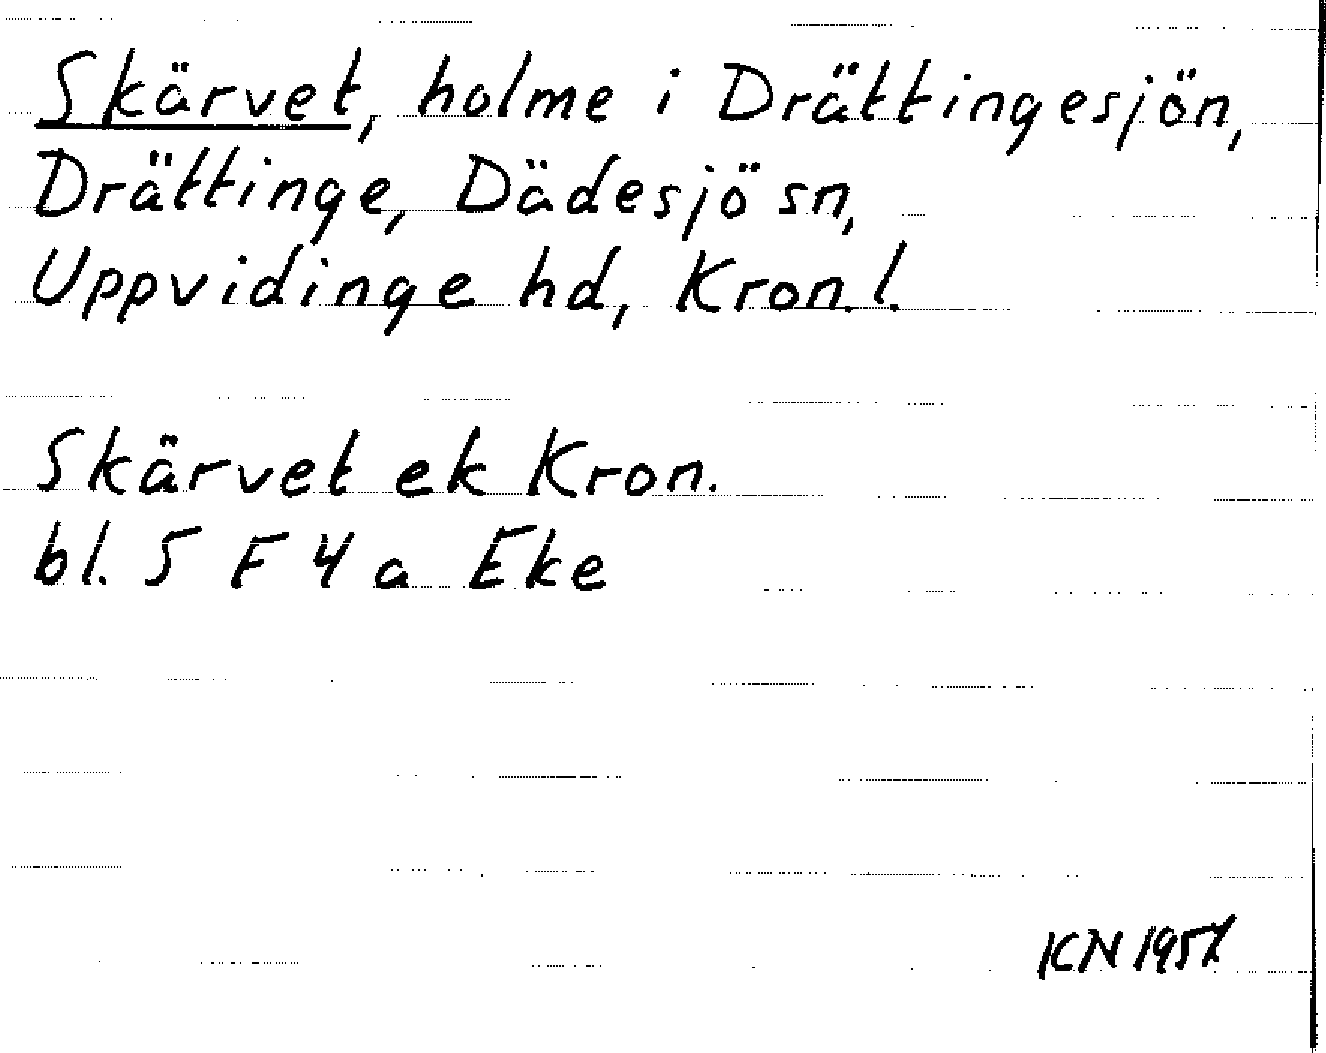 Skärvet, holme i Drättingesjön,
Drättinge, Dädesjö sn,
Uppvidinge hd, Kron.l.
Skärvet ek Kron.
bl. 5 F 4 a Eke
KN